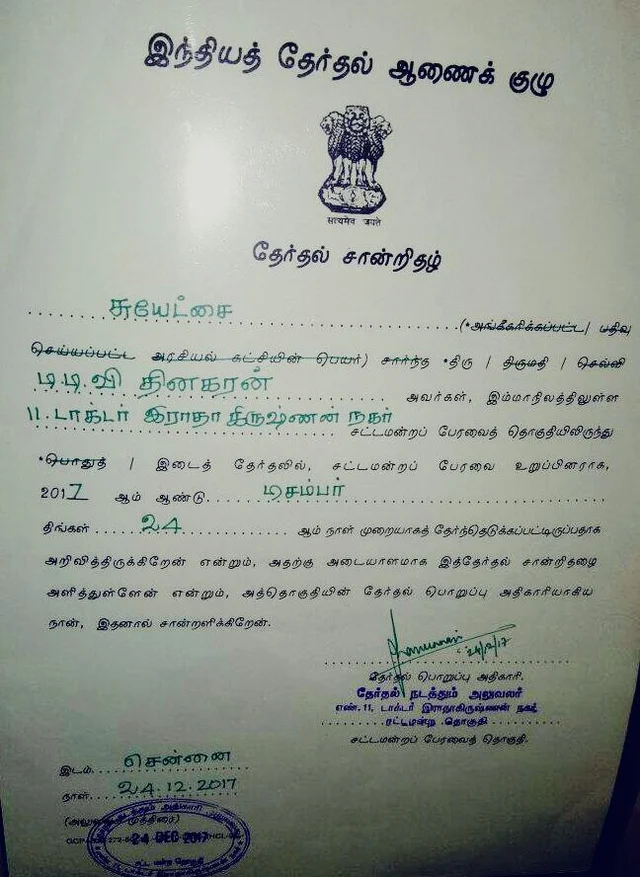 இந்தியத் தேர்தல் ஆணைக் குழு
सत्यमेव जयते
தேர்தல் சான்றிதழ்
சுயேட்சை (*அங்கீகரிக்கப்பட்ட/ பதிவு
செய்யப்பட்ட அரசியல் கட்சியின் பெயர்) சார்ந்த *திரு / திருமதி / செல்வி
டி.டி.வி தினகரன் அவர்கள், இம்மாநிலத்திலுள்ள
11. டாக்டர் இராதா கிருஷ்ணன் நகர் சட்டமன்றப் பேரவைத் தொகுதியிலிருந்து
*பொதுத் / இடைத் தேர்தலில், சட்டமன்றப் பேரவை உறுப்பினராக,
2017 ஆம் ஆண்டு டிசம்பர்
திங்கள் 24 ஆம் நாள் முறையாகத் தேர்ந்தெடுக்கப்பட்டிருப்பதாக
அறிவித்திருக்கிறேன் என்றும், அதற்கு அடையாளமாக இத்தேர்தல் சான்றிதழை
அளித்துள்ளேன் என்றும், அத்தொகுதியின் தேர்தல் பொறுப்பு அதிகாரியாகிய
நான், இதனால் சான்றளிக்கிறேன்.
24/12/17
தேர்தல் பொறுப்பு அதிகாரி.
தேர்தல் நடத்தும் அலுவலர்
எண்.11, டாக்டர் இராதாகிருஷ்ணன் நகர்
சட்டமன்ற தொகுதி
சட்டமன்றப் பேரவைத் தொகுதி.
இடம். சென்னை
நாள். 24.12.2017
(அலுவலக முத்திரை)
24 DEC 2017